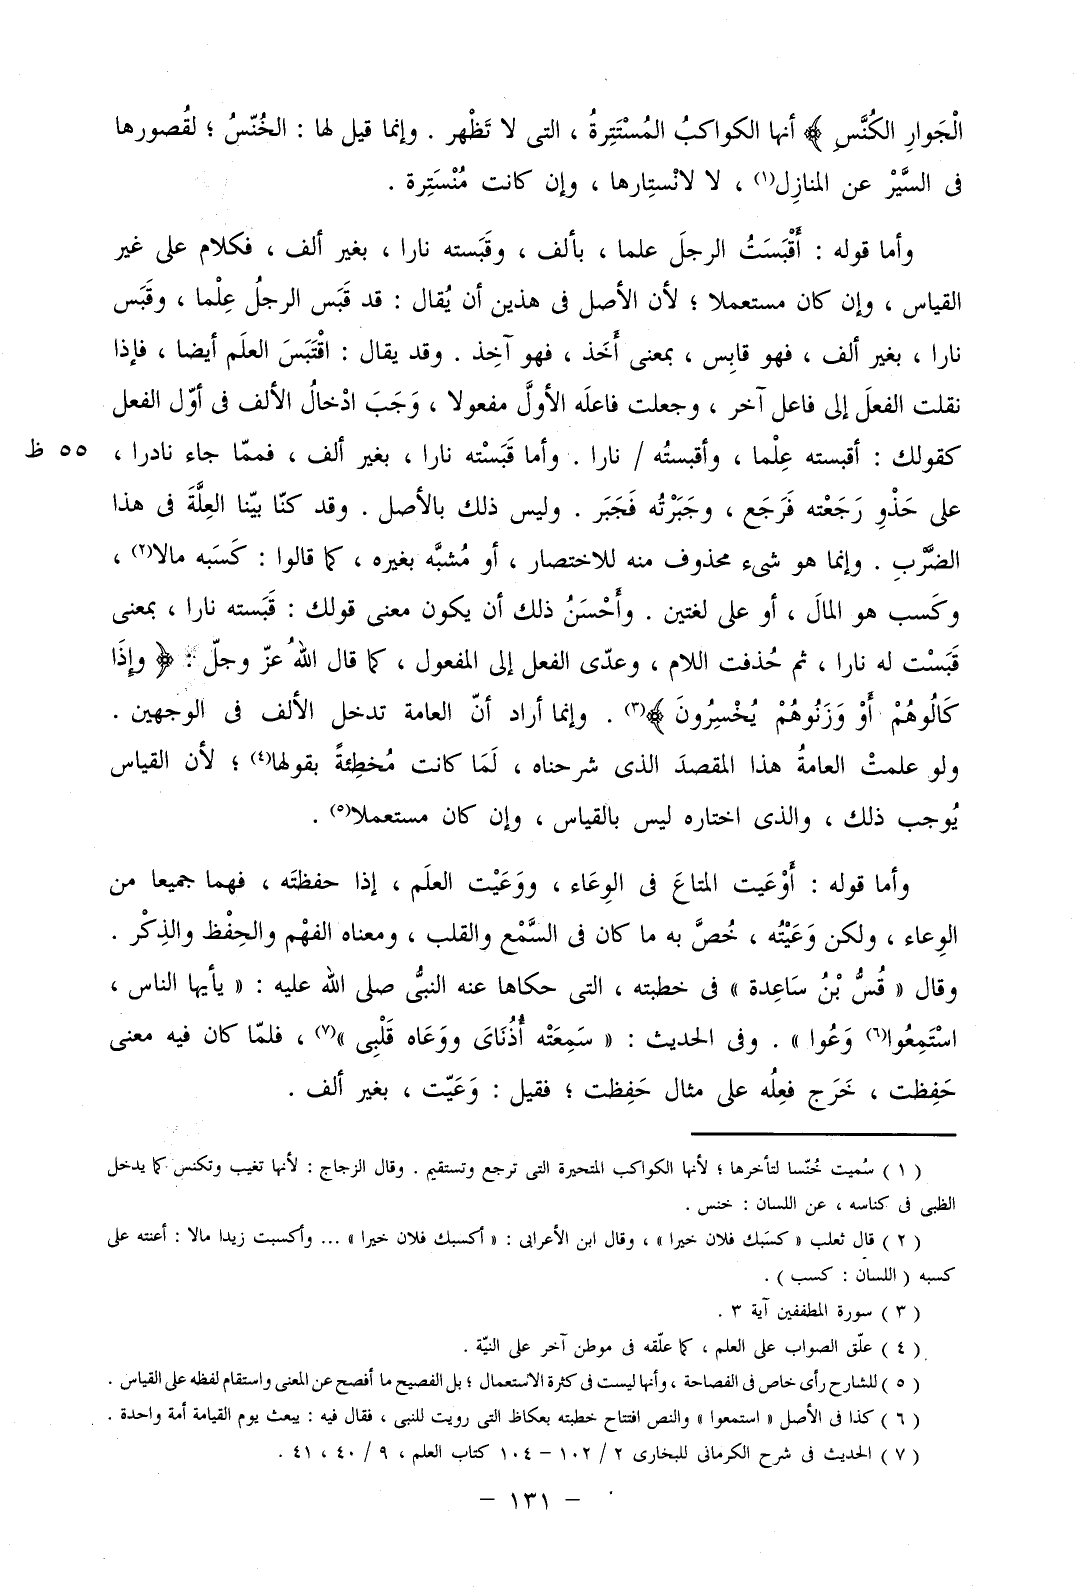 الْجَوارِ الكُنَّسِ ﴾ أنها الكواكبُ المُسْتَتِرةُ ، التى لا تَظْهر . وإنما قيل لها : الخُنّسُ ؛ لقُصورها
فى السَّيْر عن المنازِل(١) ، لا لانْستِارها ، وإن كانت مُنْسَتِرة .
وأما قوله : أَقْبَسَتُ الرجلَ علما ، بألف ، وقَبَسته نارا ، بغير ألف ، فكلام على غير
القياس ، وإن كان مستعملا ؛ لأن الأصل فى هذين أن يُقال : قد قَبَس الرجلُ عِلْما ، وقَبَس
نارا ، بغير ألف ، فهو قابِس ، بمعنى أَخَذ ، فهو آخِذ . وقد يقال : اقْتَبَسَ العلَم أيضا ، فإذا
نقلت الفعلَ إلى فاعل آخر ، وجعلت فاعلَه الأولَّ مفعولا ، وَجَبَ ادْخالُ الألف فى أوّل الفعل
كقولك : أقبسته عِلْما ، وأقبستُه / نارا . وأما قَبَسْته نارا ، بغير ألف ، فممّا جاء نادرا ،
٥٥ ظ
على حَذْوِ رَجَعْته فَرَجَع ، وجَبَرْتُه فَجَبَر . وليس ذلك بالأصل . وقد كنّا بيّنا العِلَّةَ فى هذا
الضَّربِ . وإنما هو شىء محذوف منه للاختصار ، أو مُشبَّه بغيره ، كما قالوا : كَسَبه مالا(٢) ،
وكَسب هو المالَ ، أو على لغتين . وأَحْسَنُ ذلك أن يكون معنى قولك : قَبَسته نارا ، بمعنى
قَبَسْت له نارا ، ثم حُذفت اللام ، وعدّى الفعل إلى المفعول ، كما قال اللهُ عزّ وجلّ : ﴿ وإِذَا
كَالُوهُمْ أَوْ وَزَنُوهُمْ يُخْسِرُونَ ﴾(٣) . وإنما أراد أنّ العامة تدخل الألف فى الوجهين .
ولو علمتْ العامةُ هذا المقصدَ الذى شرحناه ، لَمَا كانت مُخطِئةً بقولها(٤) ؛ لأن القياس
يُوجب ذلك ، والذى اختاره ليس بالقياس ، وإن كان مستعملا(٥) .
وأما قوله : أَوْعَيت المتاعَ فى الوِعَاء ، ووَعَيْت العلَم ، إذا حفظتَه ، فهما جميعا من
الوِعاء ، ولكن وَعَيْتُه ، خُصَّ به ما كان فى السَّمْع والقلب ، ومعناه الفهْم والحِفْظ والذِكْر .
وقال « قُسُّ بْنُ سَاعِدة » فى خطبته ، التى حكاها عنه النبىُّ صلى الله عليه : « يأيها الناس ،
اسْتَمِعُوا(٦) وَعُوا » . وفى الحديث : « سَمِعَتْه أُذُنَاىَ ووَعَاه قَلْبِى »(٧) ، فلمّا كان فيه معنى
حَفِظت ، خَرَج فعلُه على مثال حَفِظت ؛ فقيل : وَعَيّت ، بغير ألف .
( ١ ) سُميت خُنّسا لتأخرها ؛ لأنها الكواكب المتحيرة التى ترجع وتستقيم . وقال الزجاج : لأنها تغيب وتكنس كما يدخل
الظبى فى كناسه ، عن اللسان : خنس .
( ٢ ) قال ثعلب « كسَبك فلان خيرا » ، وقال ابن الأعرابى : « أكسبك فلان خيرا » ... وأكسبت زيدا مالا : أعنته على
كسبه ( اللسان : كسب ) .
( ٣ ) سورة المطففين آية ٣ .
( ٤ ) علّق الصواب على العلم ، كما علّقه فى موطن آخر على النيّة .
( ٥ ) للشارح رأى خاص فى الفصاحة ، وأنها ليست فى كثرة الاستعمال ؛ بل الفصيح ما أفصح عن المعنى واستقام لفظه على القياس .
( ٦ ) كذا فى الأصل « استمعوا » والنص افتتاح خطبته بعكاظ التى رويت للنبى ، فقال فيه : يبعث يوم القيامة أمة واحدة .
( ٧ ) الحديث فى شرح الكرمانى للبخارى ٢ / ١٠٢ – ١٠٤ كتاب العلم ، ٩ / ٤٠ ، ٤١ .
– ١٣١ –